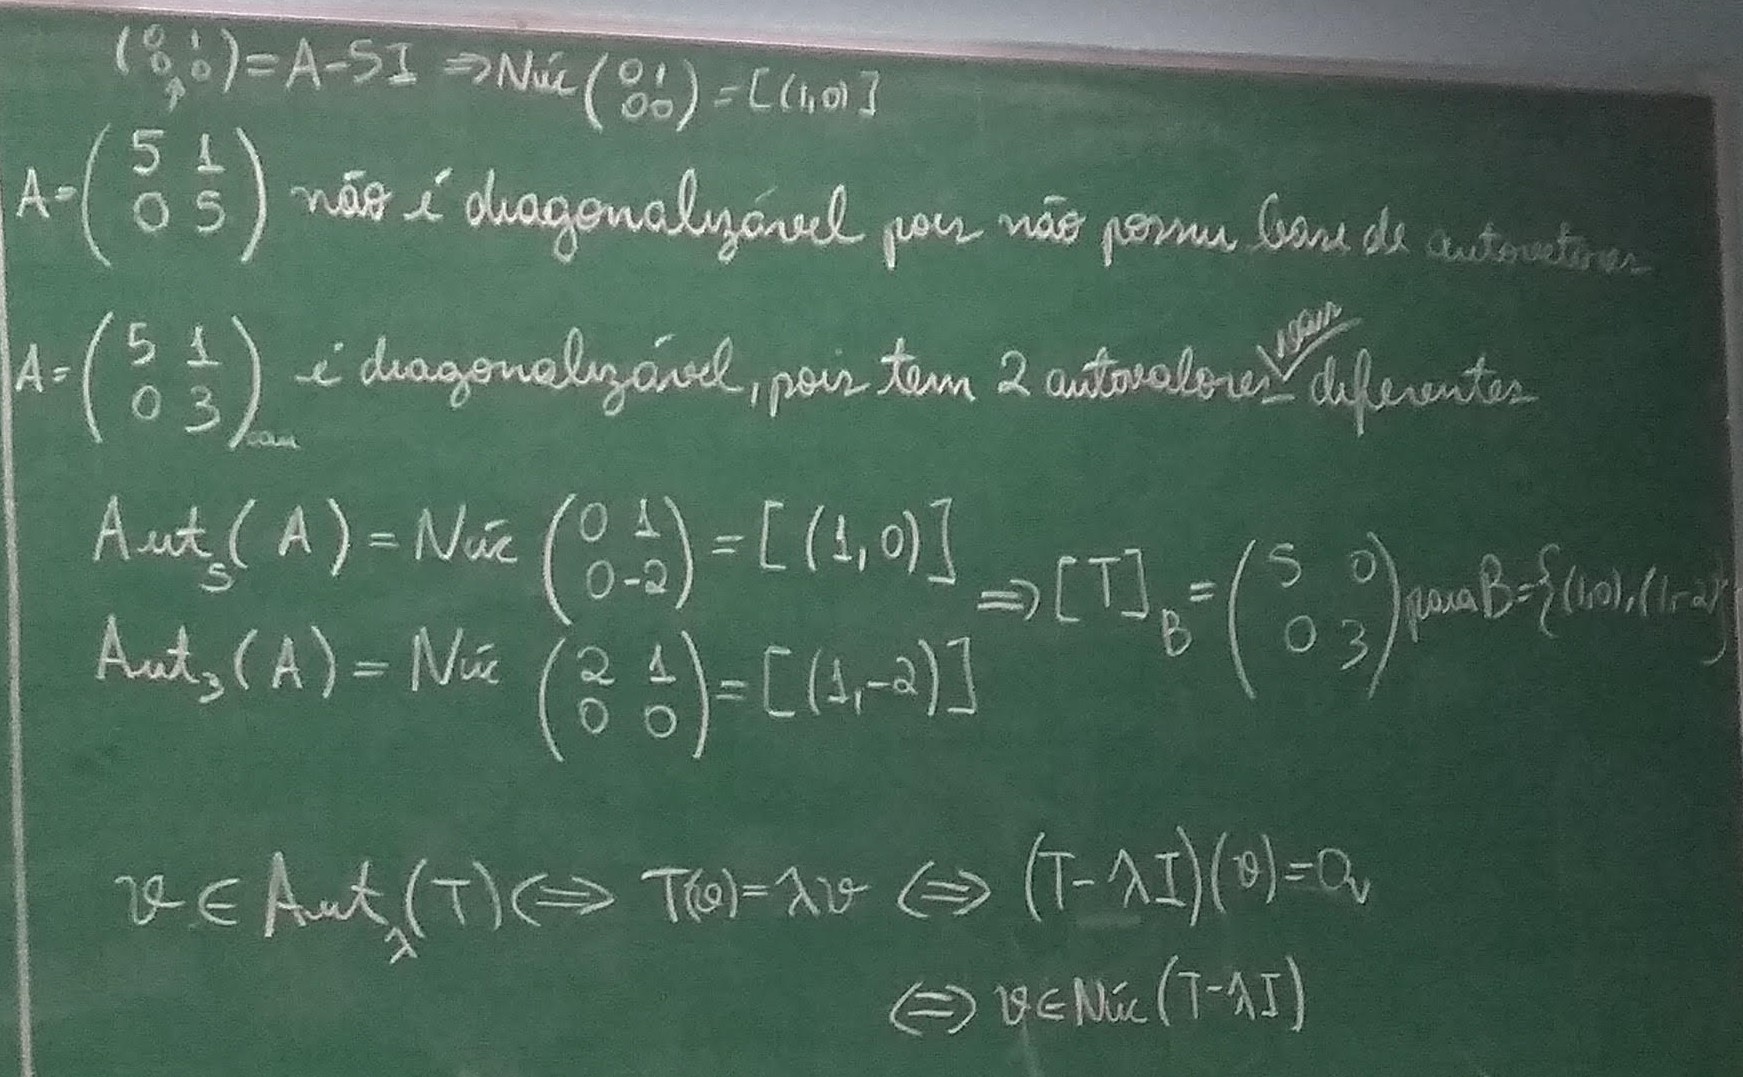 (0 1 0 0) = A-5I ⇒ Núc (0 1 0 0) = [(1,0)]
A = (5 1 0 5) não é diagonalizável pois não possui base de autovetores
A = (5 1 0 3)can é diagonalizável, pois tem 2 autovalores reais diferentes
Aut₅(A) = Núc (0 1 0 -2) = [(1,0)]
⇒ [T]_B = (5 0 0 3) para B = {(1,0), (1,-2)}
Aut₃(A) = Núc (2 1 0 0) = [(1,-2)]
v ∈ Aut_λ(T) ⇔ T(v) = λv ⇔ (T-λI)(v) = 0_V
⇔ v ∈ Núc (T-λI)